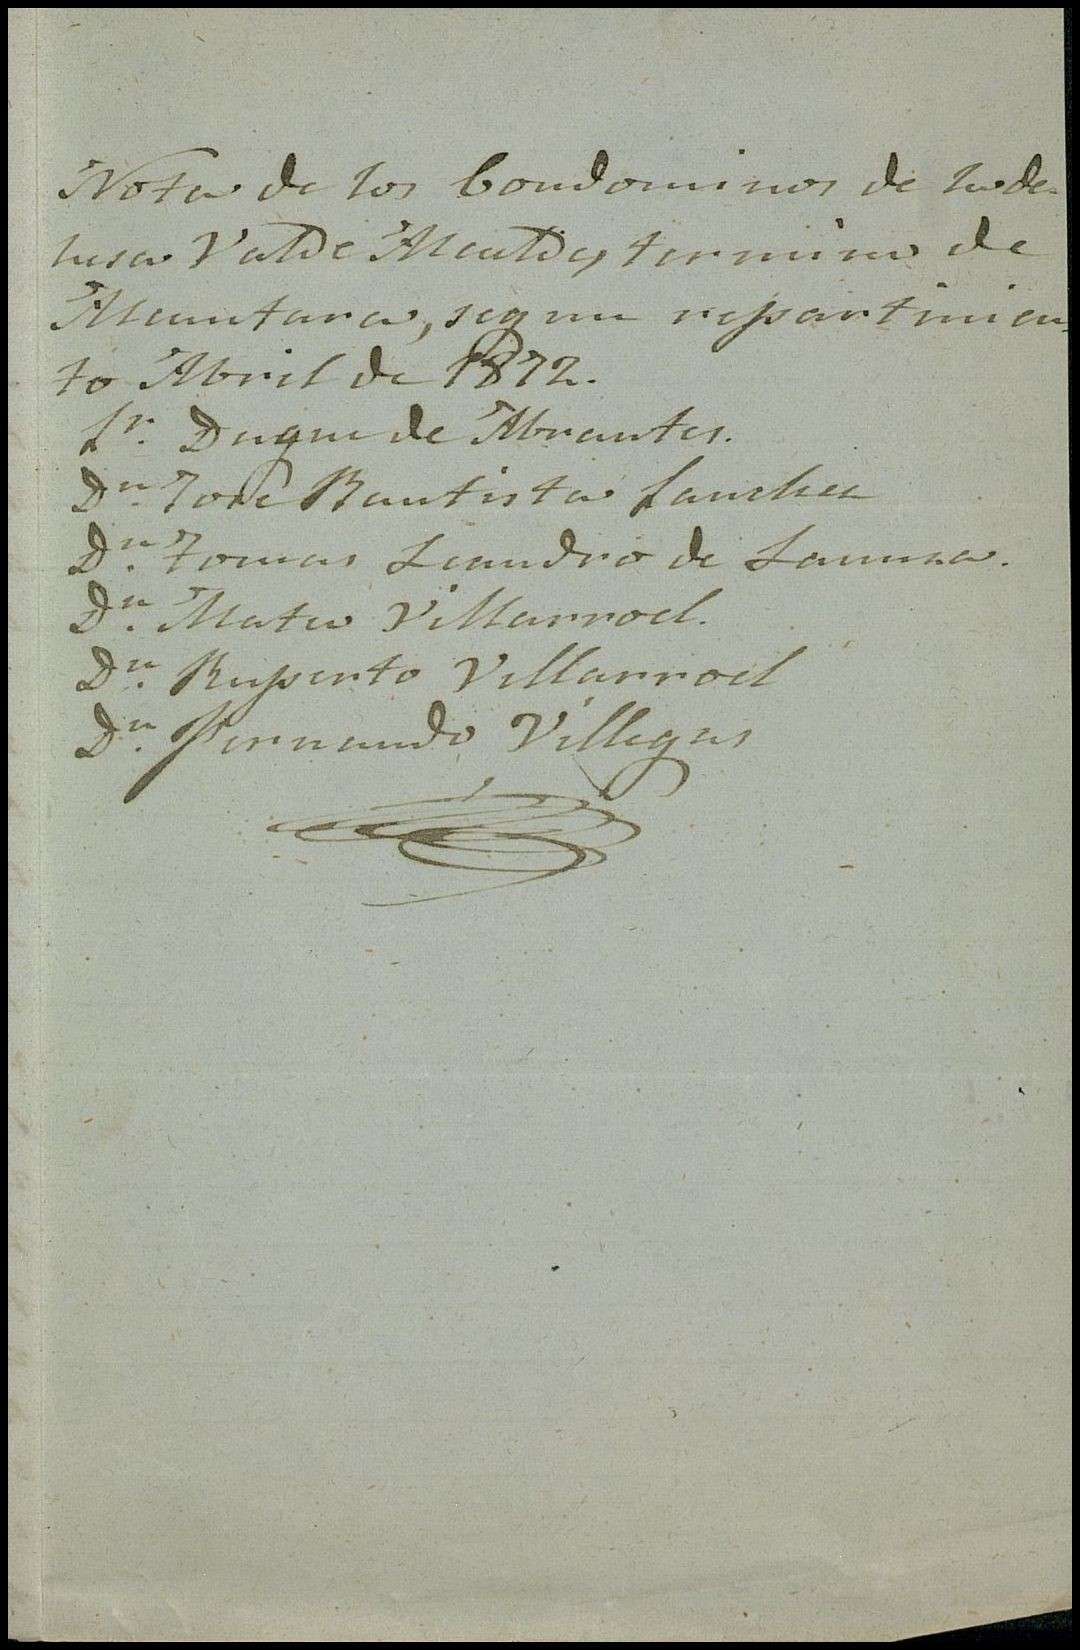 Nota de los Condominos de la de-
hesa Valde Alcalde, termino de
Alcantara, segun repartimien-
to Abril de 1872.
Sr. Duque de Abrantes.
Dn. José Bautista Sanchez
Dn. Tomas Leandro de
Dn. Mateo Villarroel.
Dn. Ruperto Villarroel
Dn. Fernando Villegas